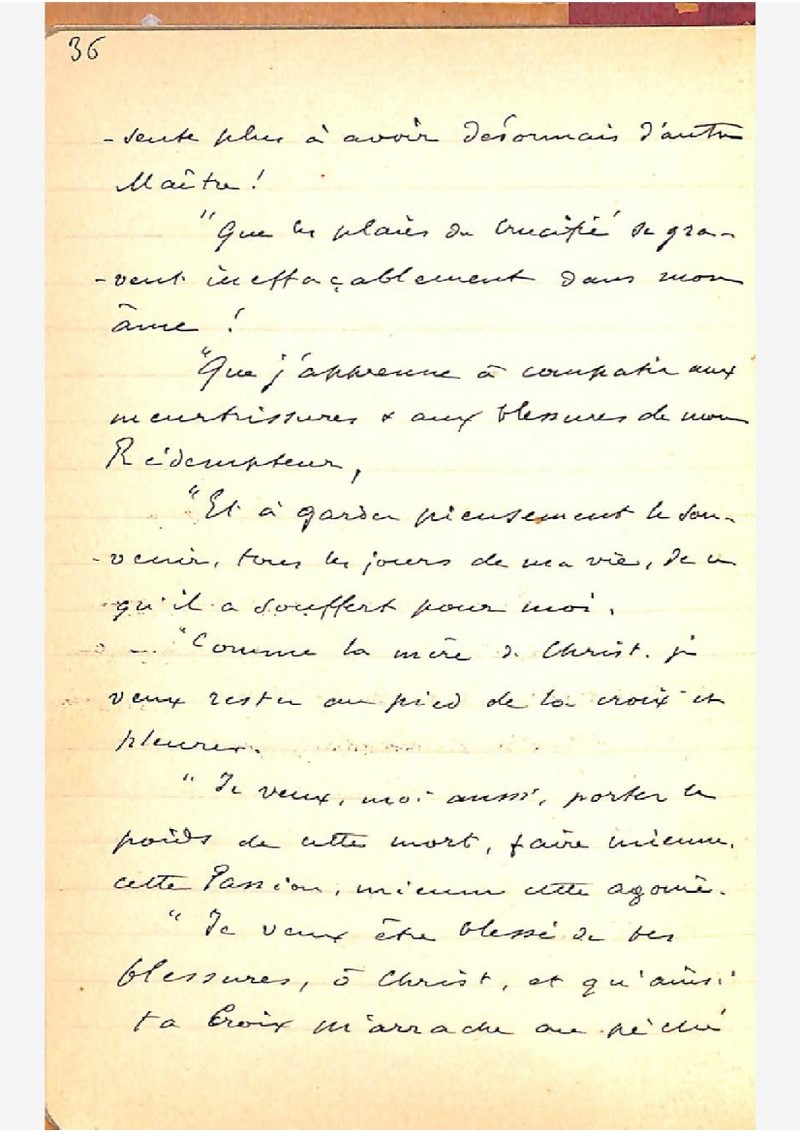 36
- sente plus à avoir désormais d'autre
Maître !
"Que les plaies du Crucifié se gra-
-vent ineffaçablement dans mon
âme !
"Que j'apprenne à compatir aux
meurtrissures & aux blessures de mon
Rédempteur,
"Et à garder pieusement le sou-
-venir, tous les jours de ma vie, de ce
qu'il a souffert pour moi.
"Comme la mère du Christ. je
veux rester au pied de la croix et
pleurer.
" Je veux, moi aussi, porter le
poids de cette mort, faire mienne,
cette Passion, mienne cette agonie.
" Je veux être blessé de tes
blessures, ô Christ, et qu'ainsi
ta Croix m'arrache au péché